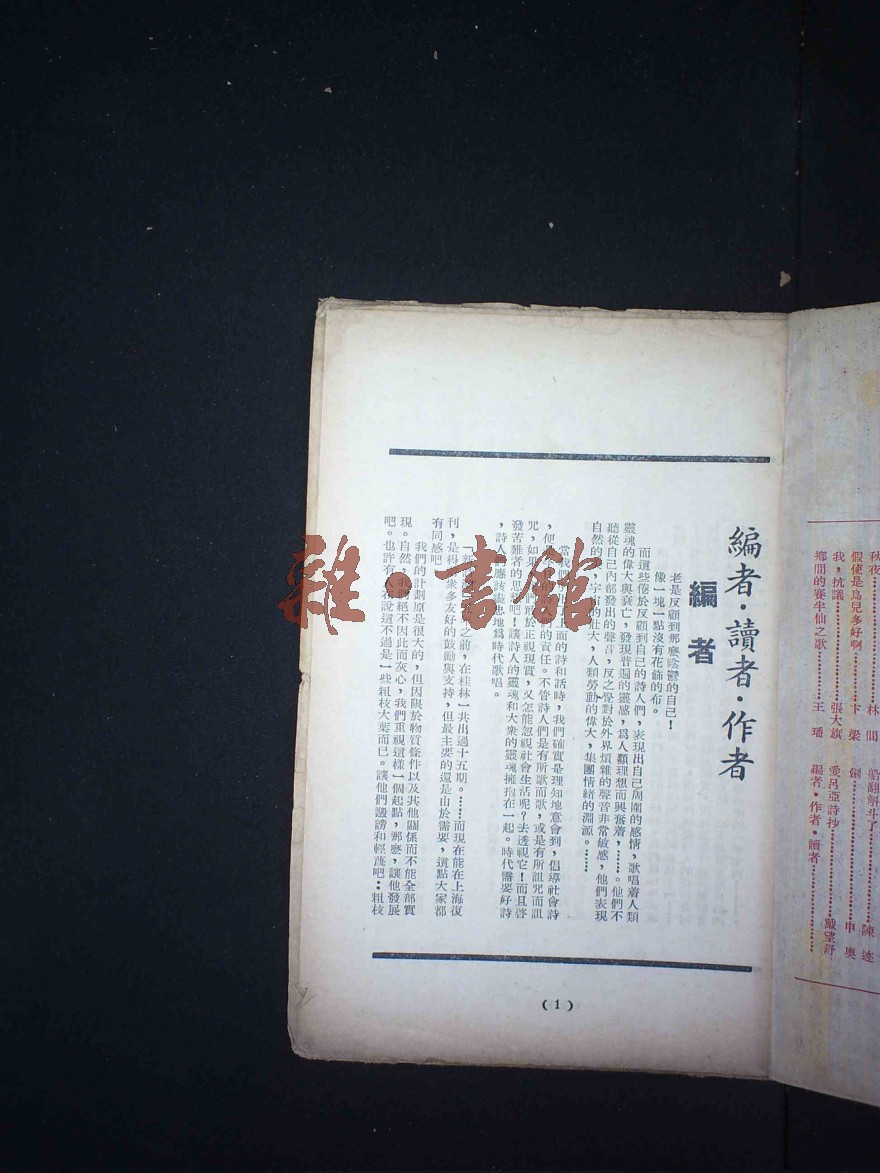 編者・讀者・作者
編者
老是反顧到那麽陰鬱的自己!
像一塊一點沒有花飾的布。
而這些倦於反顧到自己的詩人們,表現出自己周圍的感情,歌唱着人類
靈魂的偉大與衰亡,發現普遍的靈感,爲人類理想而興奮着,……。他們不
聽從自己內部發出的聲音,反之覺對於外界煩雜的聲音非常敏感,他們表現
自然的美,宇宙的壯大,人類勞動的偉大,集團情緒的淵源。……
當我 面的詩和話時,我們確實是理知地意會到,倡導社會詩
,便 的責任。不管詩人們是有所歌而歌,或是有所詛咒而詛
咒,如果 們敢於正視現實,又怎能忽視社會生活呢?去透視它!而且啓
發苦難者的思 吧!讓詩人的靈魂和大衆的靈魂擁抱在一起。時代需要好詩
,詩人們應該 忠地爲時代歌唱。
「新 之前,在桂林一共出過十五期。……而現在能在上海復
刊,是得 衆多友好的鼓勵與支持,但最主要的還是由於需要,這點大家都
有同感吧
我們的計劃原是很大的,但因限於物質條件以及其他關係而不能全部實
現。自然,我們絕不因此而灰心,我們重視這樣一個起點,那麽,讓他發展
吧。也許有人在說這不過是一些粗枝大葉而已。讓他們譏謗和輕蔑吧:粗枝
(1)
秋夜……林間
假使是鳥兒多好啊……卞梁
我,抗議……張大旗
鄉間的賽半仙之歌……王璠
船翻斛斗了……陳迹
劍……申奧
愛呂亞詩抄……戴望舒
編者・作者・讀者……
雜・書館